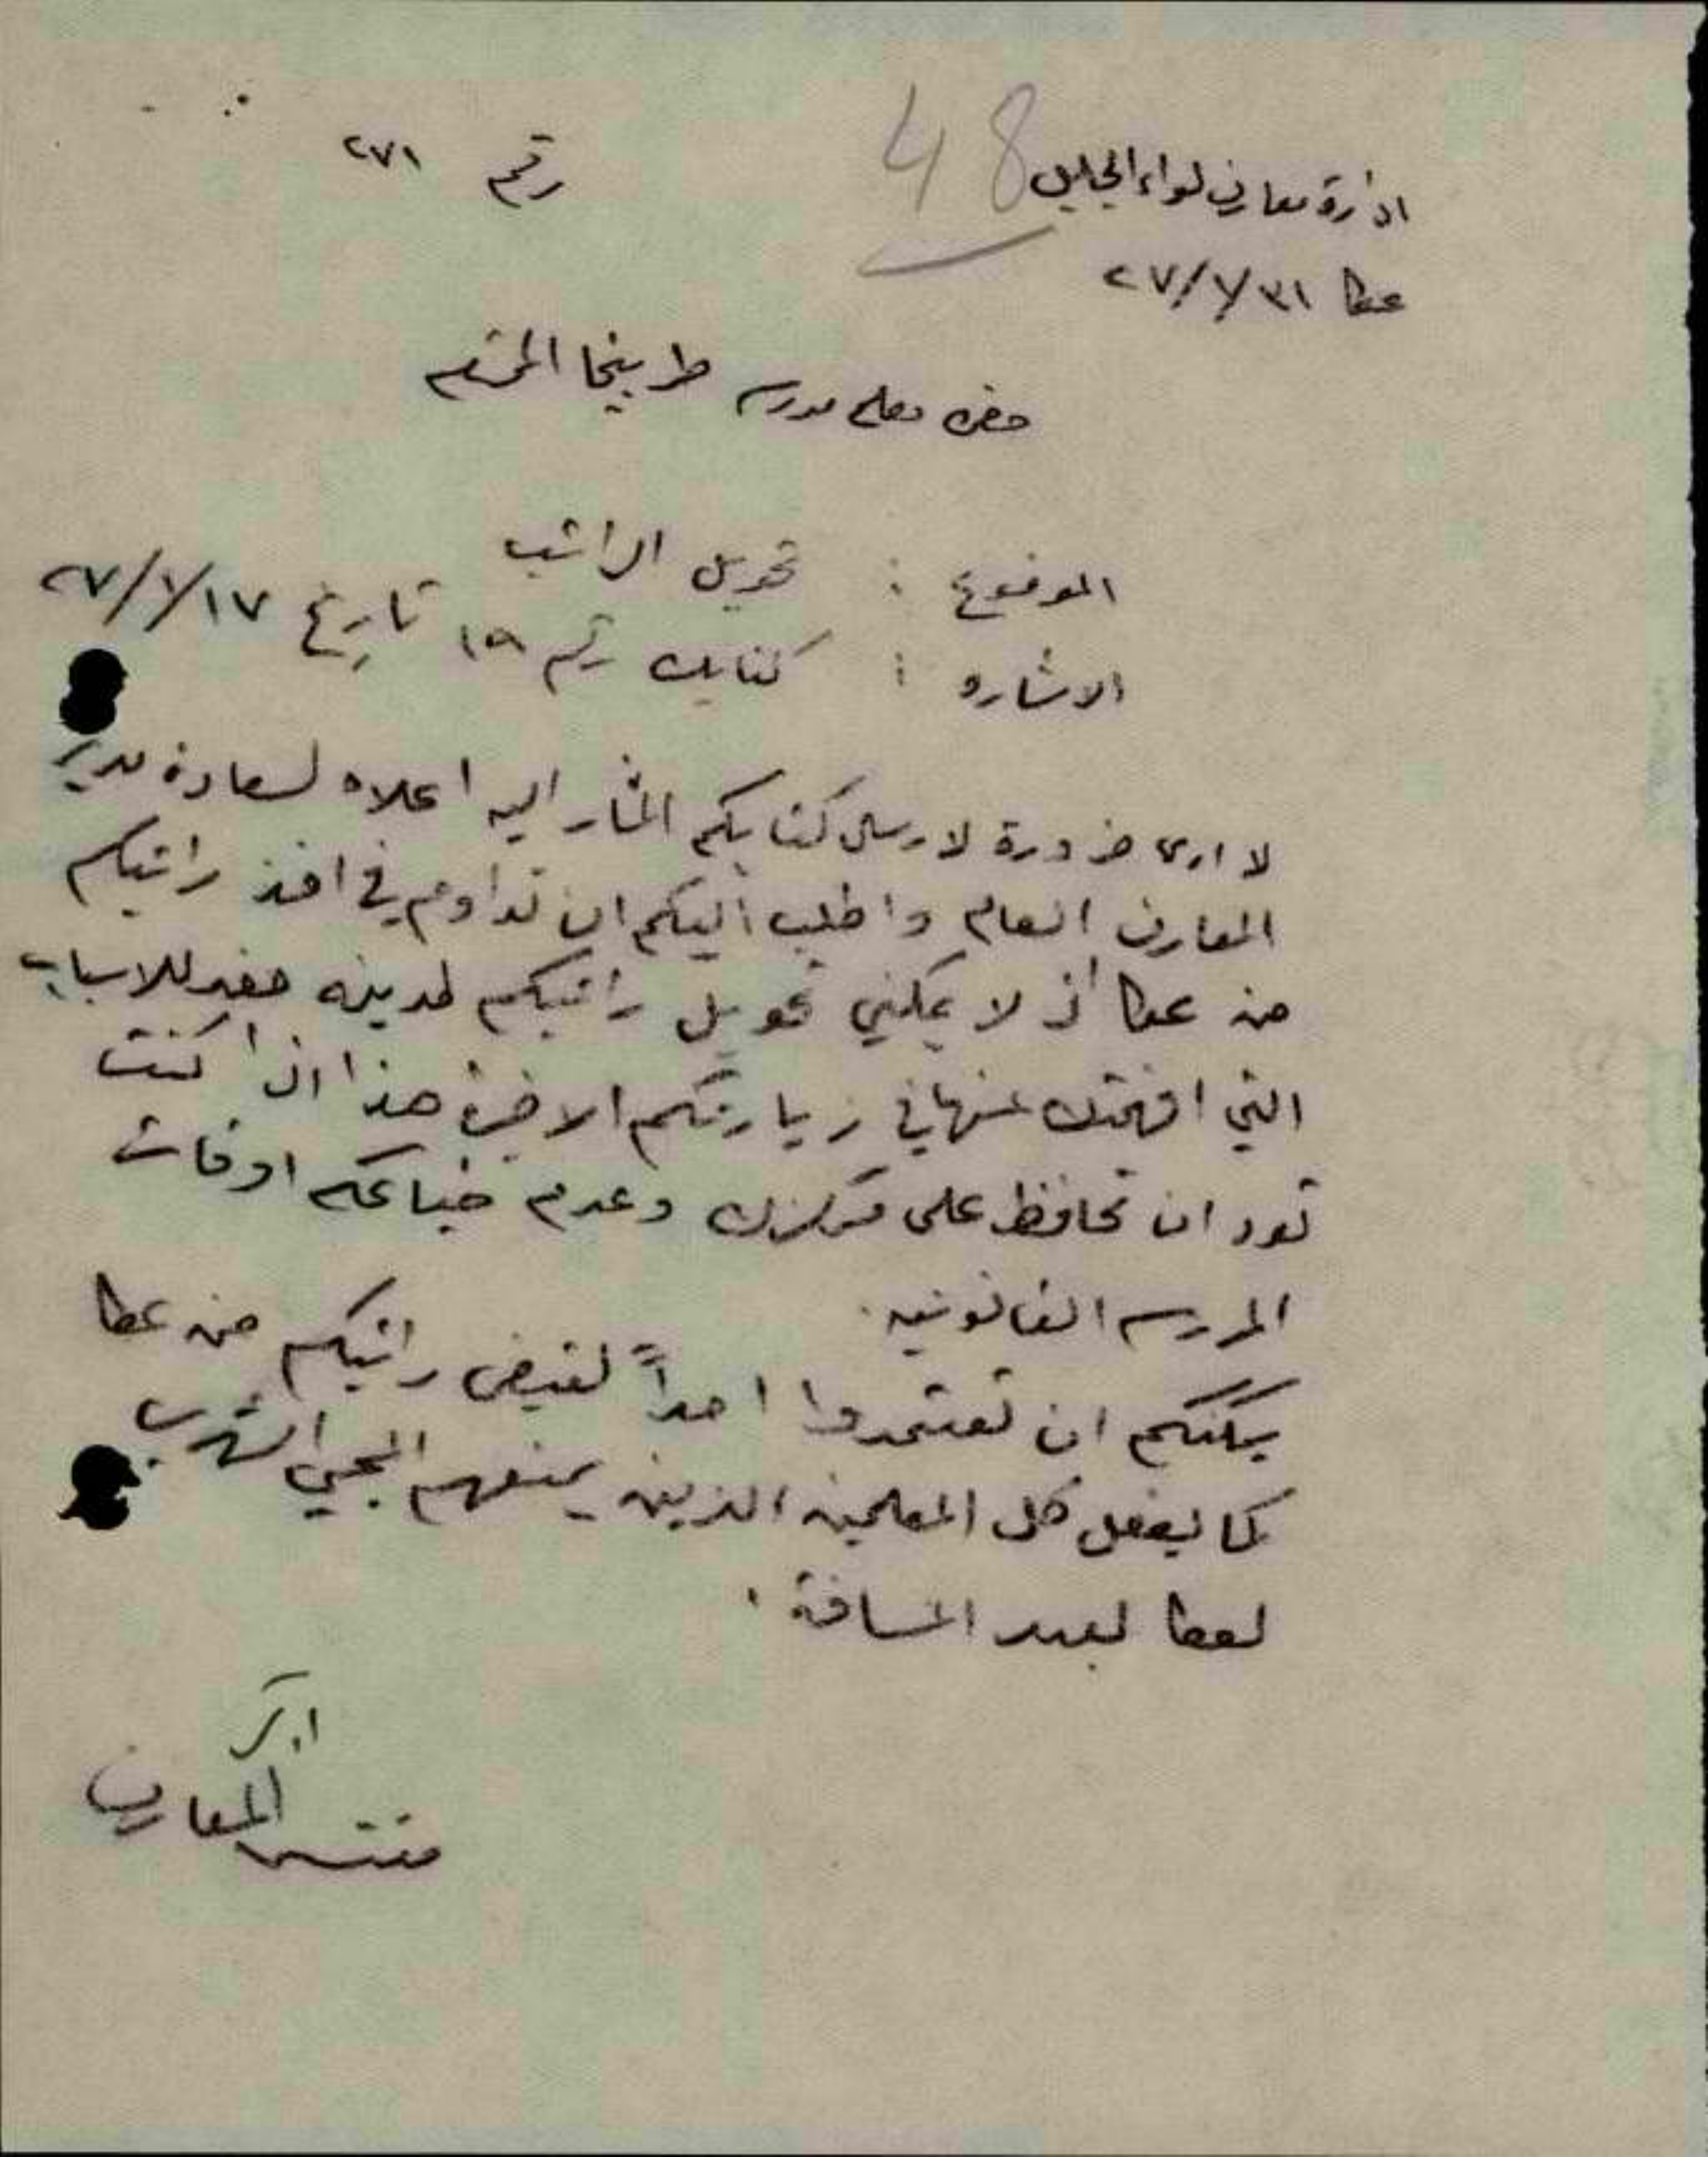 ادارة معارف لواء الجليل
48
رقم ٢٧١
عكا ٣١/٧/٢٧
حضرة معلم مدرسة طربيخا المحترم
الموضوع : تحويل الراتب
الاشارة : كتابك رقم ١٩ تاريخ ١٧/٧/٢٧
لا ارى ضرورة لارسال كتابكم المشار اليه اعلاه لسعادة مدير
المعارف العام واطلب اليكم ان تداوم في اخذ راتبكم
من عكا اذ لا يمكنني تحويل راتبكم لمدينة صفد للاسباب
التي افهمتك عنها في زيارتكم الاخيرة هذا اذا كنت
تود ان تحافظ على مركزك وعدم ضياعكم اوقات
المدرسة القانونية.
يمكنكم ان تعتمدوا احداً لقبض راتبكم من عكا
كما يفعل كل المعلمين الذين يمنعهم المجيء الشهري
لعكا لبعد المسافة.
مفتش المعارف